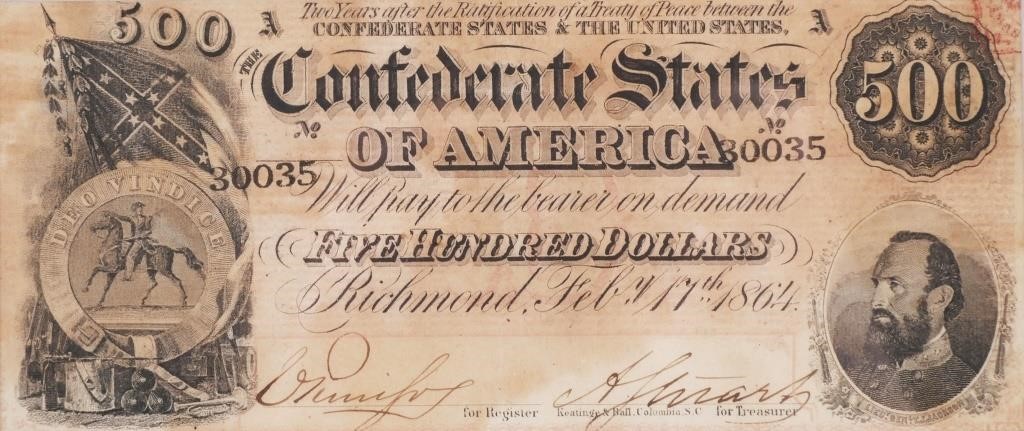 500 A Two Years after the Ratification of a Treaty of Peace between the A
CONFEDERATE STATES & THE UNITED STATES,
THE Confederate States 500
OF AMERICA
No No
30035 30035
Will pay to the bearer on demand
DEO VINDICE
FIVE HUNDRED DOLLARS
Richmond, Feby 17th 1864.
A Stuart
for Register Keatinge & Ball, Columbia, S.C for Treasurer